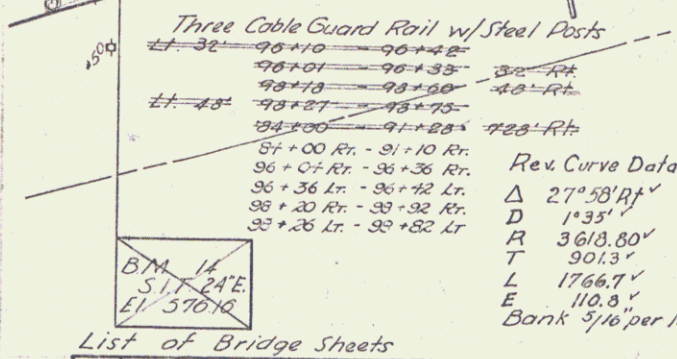 Three Cable Guard Rail w/ Steel Posts
.50
Lt. 32' 96+10 - 96+42
96+01 - 96+33 32' Rt.
98+18 - 98+66 48' Rt.
Lt. 48' 98+27 - 98+75
84+00 - 91+28 728' Rt.
84+00 RT. - 91+10 RT.
96+04 RT. - 96+36 RT.
96+36 LT. - 96+42 LT.
98+20 RT. - 99+92 RT.
99+26 LT. - 99+82 LT
Rev. Curve Data
Δ 27°58' Rt ✓
D 1°35' ✓
R 3618.80 ✓
T 901.3 ✓
L 1766.7 ✓
E 110.8 ✓
Bank 5/16" per
B.M. 14
S.I.T. 24" E.
El. 576.16
List of Bridge Sheets